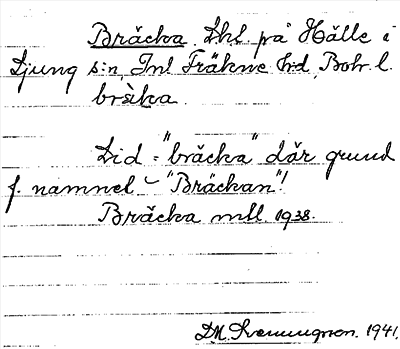 Bräcka. Lht på Hälle i
Ljung s:n, Inl Fräkne hd, Boh. l.
brὲka.
Lid = "bräcka" där grund
f. namnet – "Bräckan"!
Bräcka mtl. 1938.
1941.